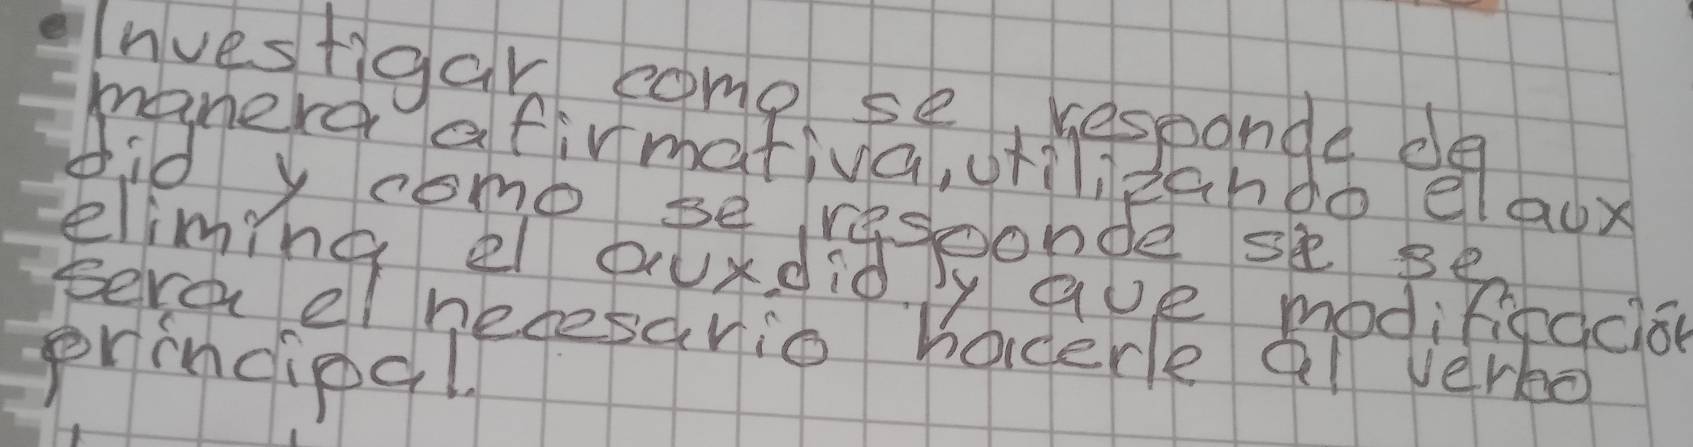 Investigar como se responde de
manera afirmativa, utilizando el aux
did y como se responde si se
elimina el aux.did. y que modificación
sera el necesario hacerle al verbo
principal.